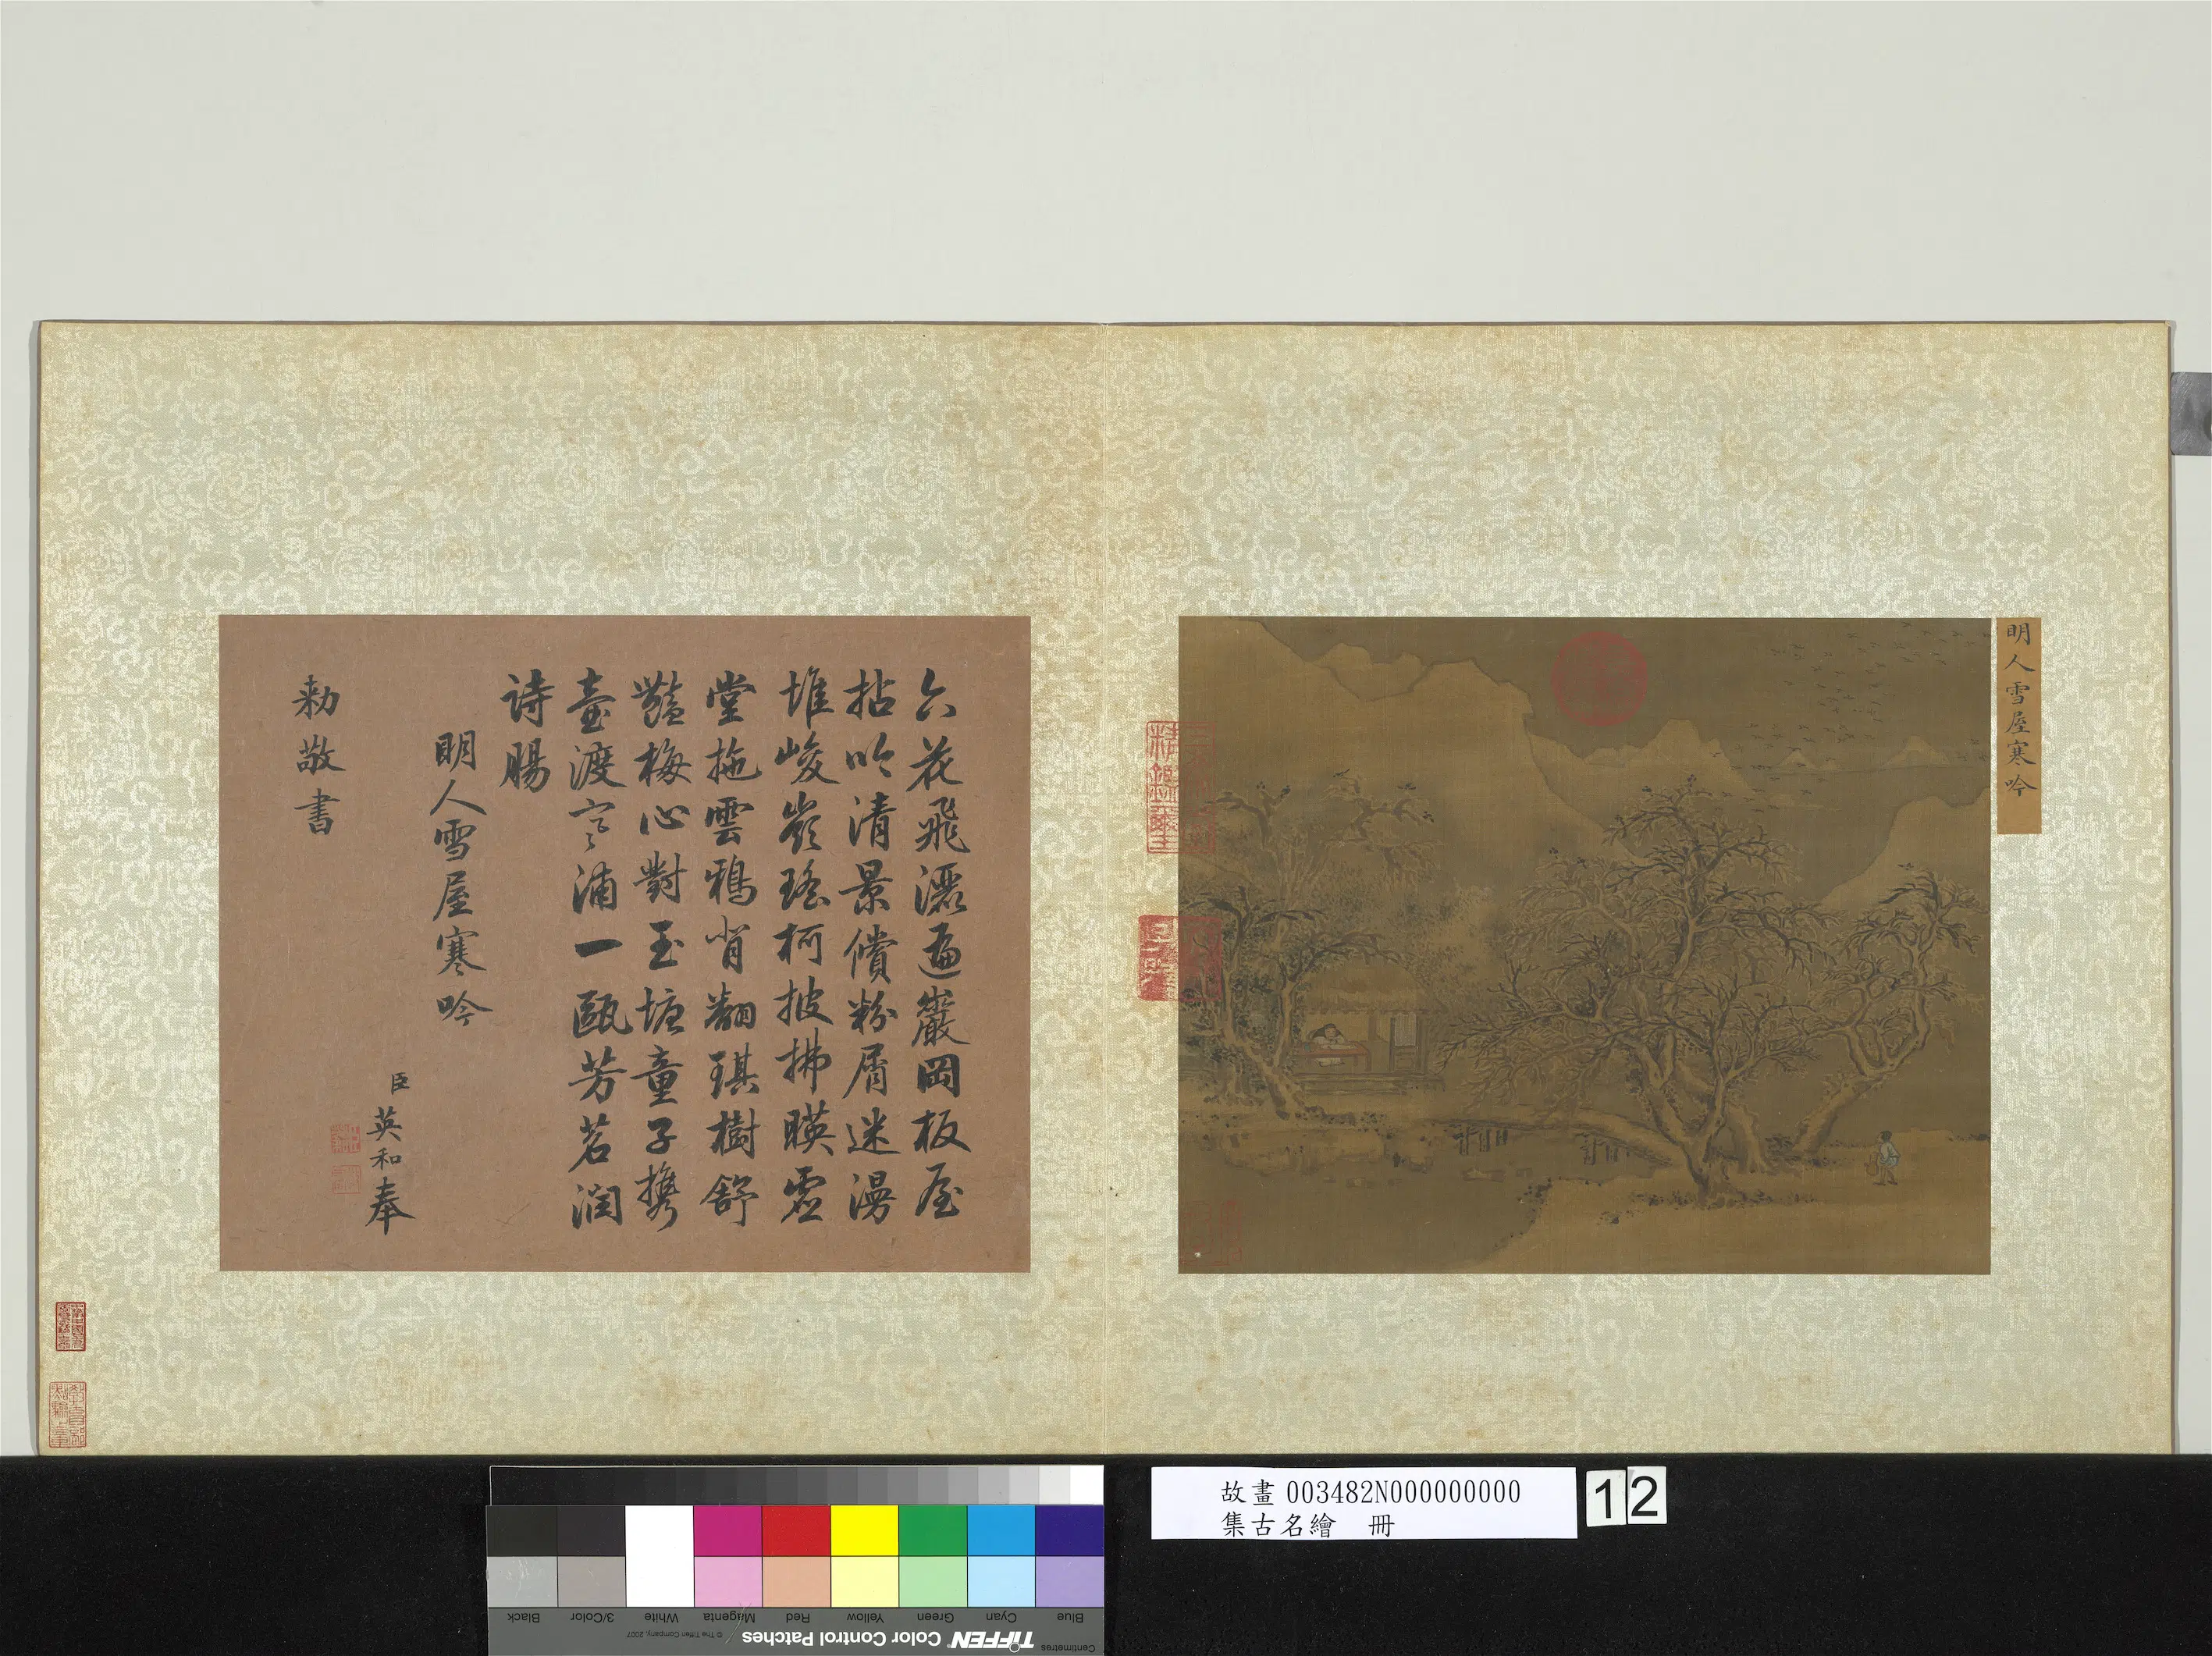 明人雪屋寒吟
六花飛灑遍巖岡板屋
拈吟清景償粉屑迷漫
堆峻嶺瑤柯披拂暎虛
堂拖雲鴉背翻琪樹舒
豔梅心對玉塘童子攜
壷渡寒浦一甌芳茗潤
詩腸
明人雪屋寒吟
臣英和奉
勅敬書
故畫 003482N000000000
集古名繪 冊
12
Black
3/Color
White
Magenta
Red
Yellow
Green
Cyan
Blue
Centimetres
TIFFEN Color Control Patches
© The Tiffen Company, 2007